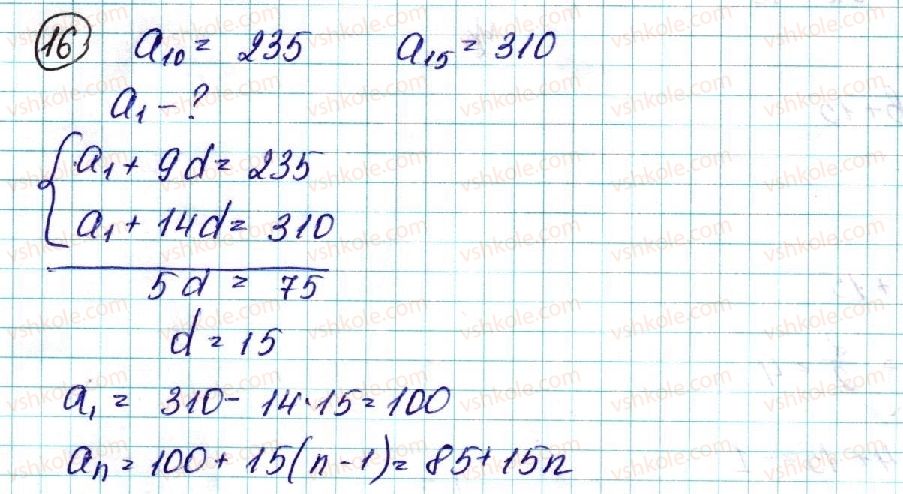 16 a₁₀ = 235 a₁₅ = 310
a₁ - ?
{ a₁ + 9d = 235
a₁ + 14d = 310
5d = 75
d = 15
a₁ = 310 - 14·15 = 100
aₙ = 100 + 15(n-1) = 85 + 15n
vshkole.com